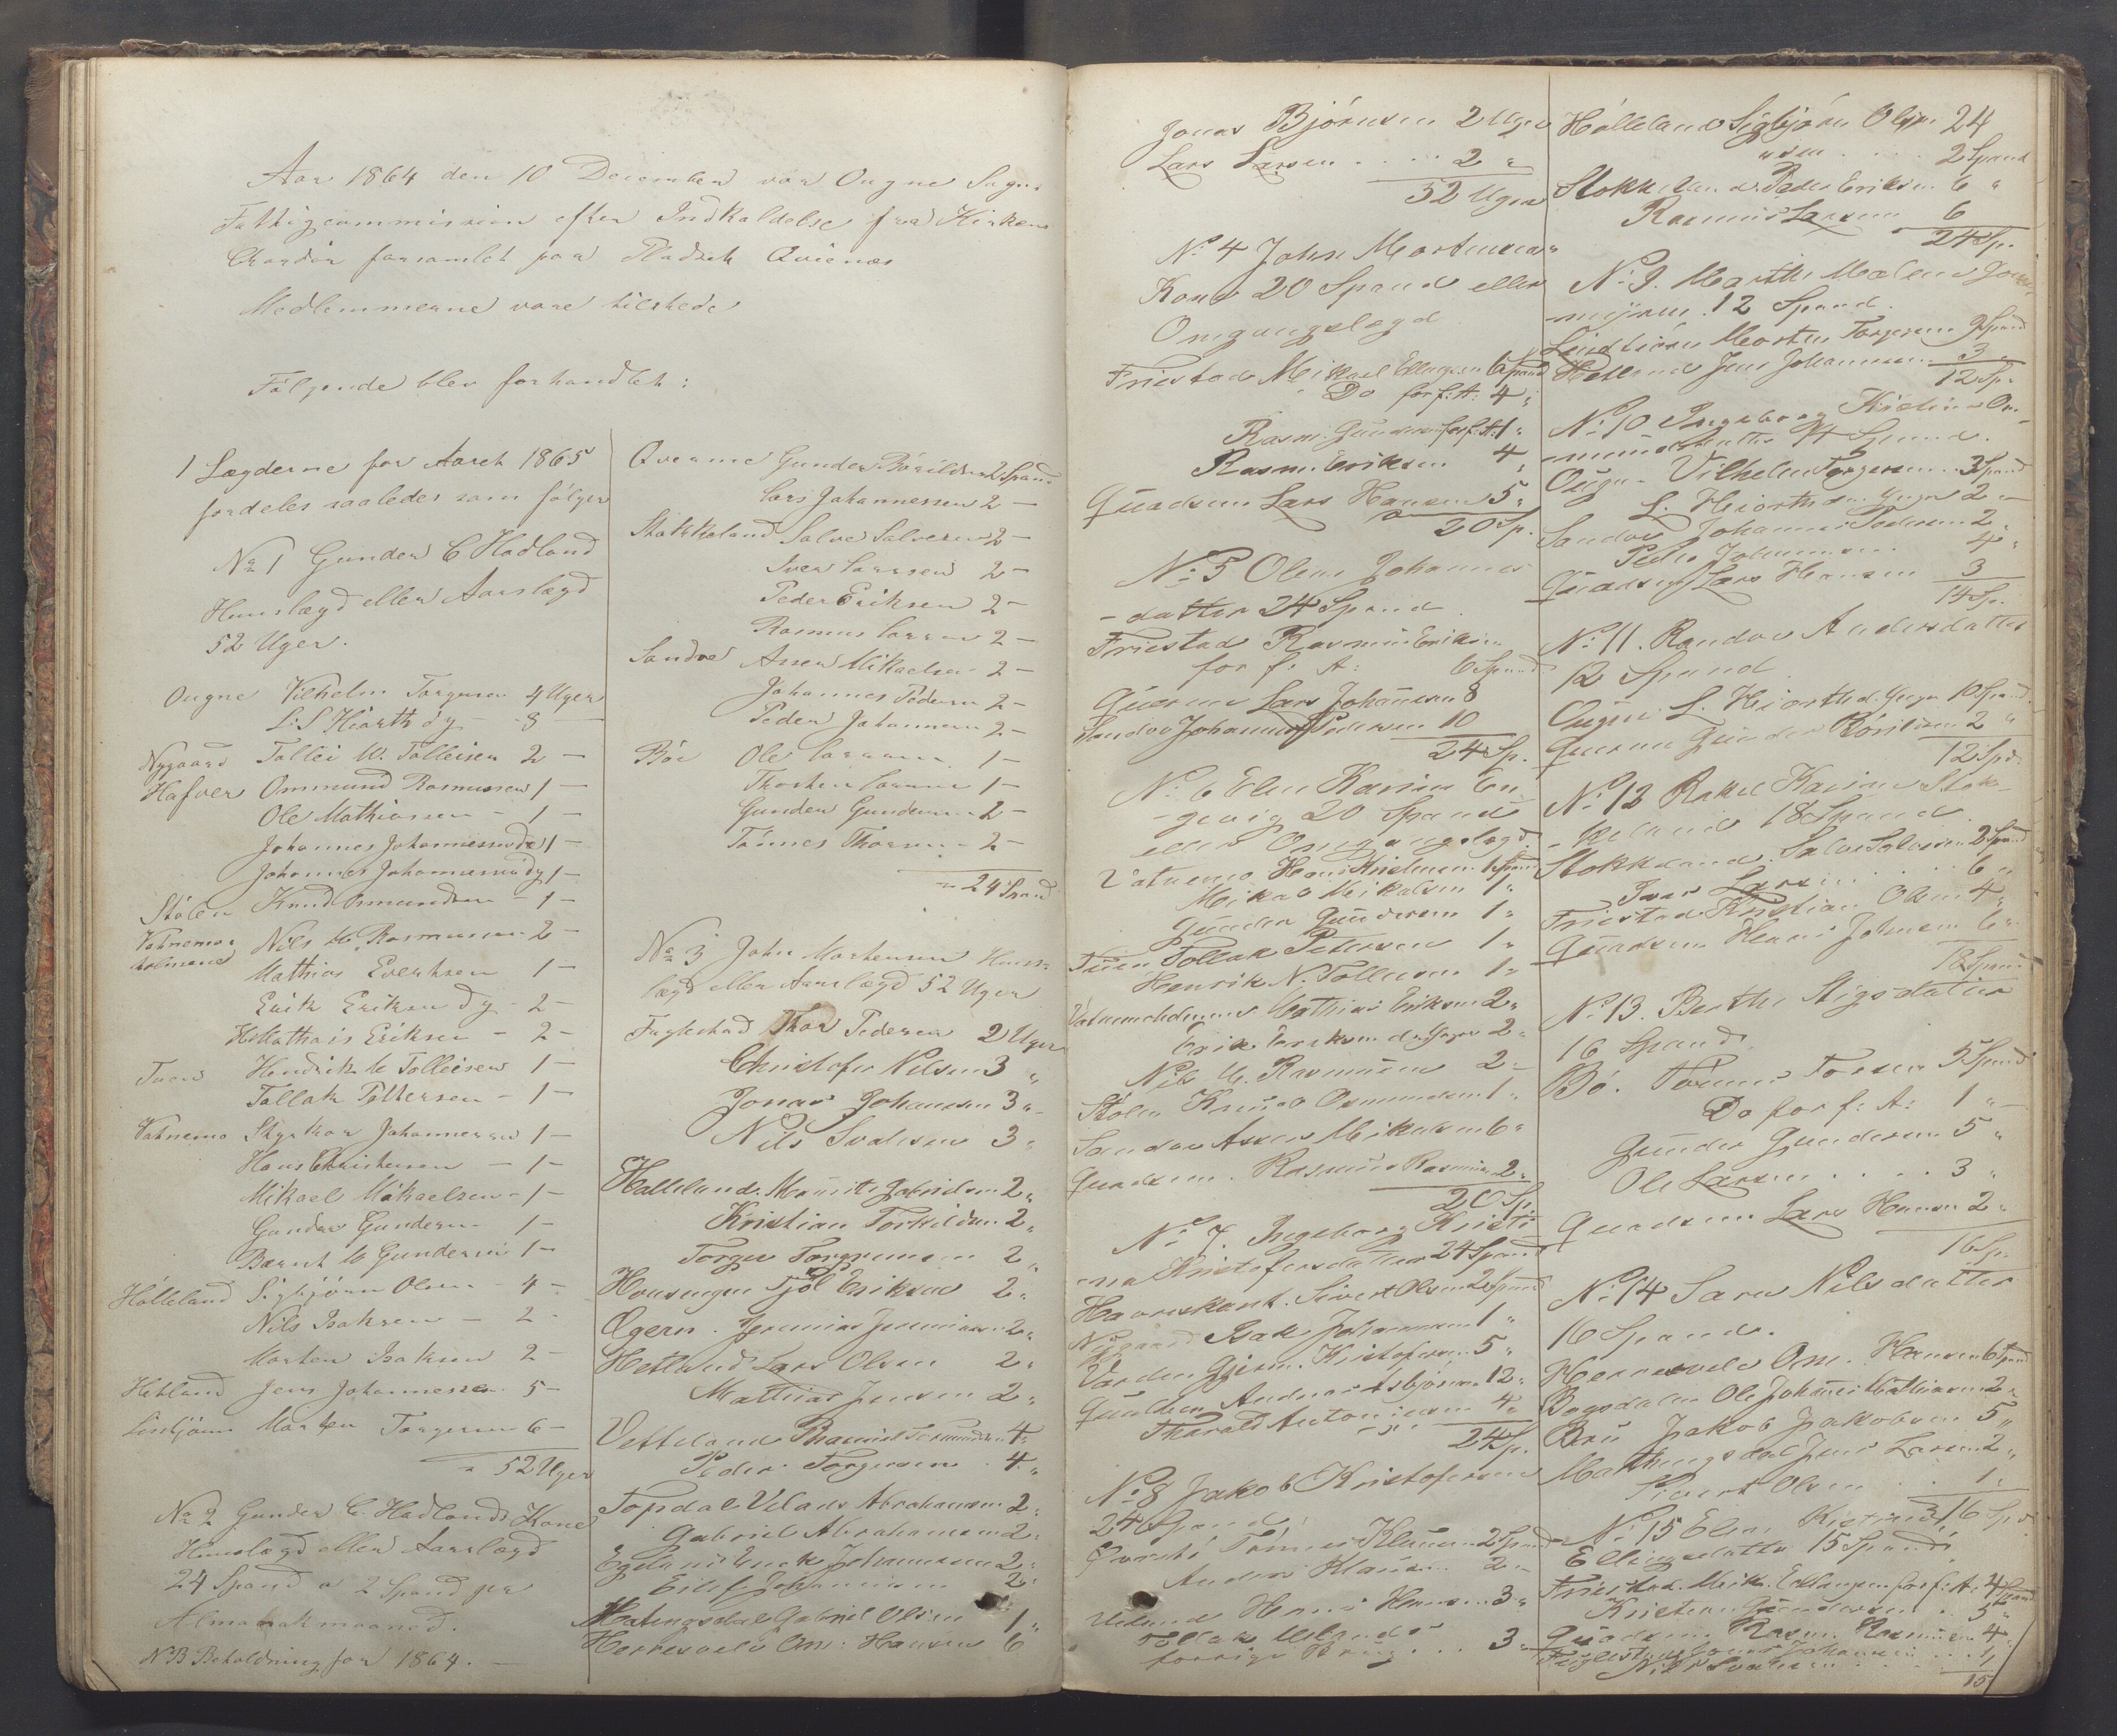 Aar 1864 den 10 December var Ougne Sogns
Fattigcommission efter Indkaldelse fra Kirkens
forsamlet paa Pladsen Qvienes
Medlemmerne vare tilstede
Følgende blev forhandlet:
1 Lægderne for Aaret 1865
fordeles saaledes som følger
No 1 Gunder C Hadland
Huuslægd eller Aarslægd
52 Uger.
Ougne Vilhelm Torgersen 4 Uger
L. S Hiorth dy - 8 -
Nygaard Tollei W. Tolleisen 2 -
Hafver Ommund Rasmussen 1 -
Ole Mathiassen - 1 -
Johannes Johannessen de 1 -
Johannes Johannessen dy 1 -
Stølen Knud Osmundsen - 1 -
Vatnemo Nils M. Rasmussen 2 -
holmene
Mathias Eriksen 1 -
Erik Eriksen dy - 2 -
Mathais Eriksen - 2 -
Tuen Hendrik N Tolleisen 1 -
Tollak Pettersen - 1 -
Vatnemo Johannessen 1 -
Hans Christensen - 1 -
Mikael Mikaelsen - 1 -
Gunder Gundersen 1 -
Bærnt M Gundersen 1 -
Hølleland Sigbjørn Olsen - 4 -
Nils Isaksen - 2 -
Morten Isaksen 2 -
Hetland Jens Johannessen 5 -
Lindtjørn Morten Torgersen 6 -
52 Uger
No 2 Gunder C. Hadlands Kone
Huuslægd eller Aarslægd
24 Spand a 2 Spand per
Almanakmaaned.
NB Beholdning for 1864. -
Qverme Gunder Børildsen 2 Spand
Lars Johannessen 2 -
Stokkeland Salve Salvesen 2 -
Iver Larsen 2 -
Peder Eriksen 2 -
Rasmus Larsen 2 -
Sandve Asser Mikaelsen 2 -
Johannes Pedersen 2 -
Peder Johannessen 2 -
Bøe Ole Larsen 1 -
Thorsten Larsen 1 -
Gunder Gundersen 2 -
Tønnes Thorsen - 2 -
24 Spand
No 3 John Mortensen Huus-
lægd eller Aarslægd 52 Uger
Fuglestad Thor Pedersen 2 Uger
Christofer Nilsen 3 "
Jonas Johansen 3 "
Nils Svalesen 3 "
Hølleland. Mauritz Gabrielsen 2 "
Kristian Torkildsen 2 "
Torger Torgersen 2 "
Hovsengen Tjøl Eriksen 2 "
Øgern. Jeremias Jeremiasen 2 "
Hetland Lars Olsen 2 "
Mathias Jensen 2 "
Vetteland 4 "
Peder Torgersen 4 "
Topdal Velaus Abrahamsen 2 "
Gabriel Abrahamsen 2 "
Eigeland Enok Johannesen 2 "
Eilef Johannesen 2 "
Matingsdal Gabriel Olsen 1 "
Herresvele Om: Hansen 6
Jonas Bjørnsen 2 Uger
Lars Larsen . . . . 2 "
52 Uger
No 4 John Mortensens
Kone 20 Spand eller
Omgangslægd
Friestad Mikael Ellingsen 6 Spand
Do for f: A: 4 "
Rasm. Gundersen for f: A: 1 "
Rasm. Eriksen 4 "
Quadsem Lars Hansen 5 "
20 Sp.
No 5 Olene Johannes
-datter 24 Spand
Friestad Rasmus Eriksen
for f: A: 6 Spand
Querme Lars Johannesen 8
Sandve Johannes Pedersen 10
24 Sp.
No 6 Elen Karine
20 Spand
eller Omgangslægd.
Vatnemo Hans Kristensen 1 Spand
Mikal Mikalsen 1 "
Gunder Gundersen 1 "
Tuen Tollak Petersen 1 "
Henrik N. Tolleisen 1 "
Vatnemoholmene Mathias Eriksen 2 "
Erik Eriksen d. yngre 2 "
Nils M. Rasmusen 2 -
Stølen Knud Osmundsen 1 "
Sandve Asser Mikalsen 6 "
Quadsem. Rasmus Rasmusen 2 "
20 Sp.
No 7. Ingeborg Kristi
-na Kristofersdatter 24 Spand
Havreskant. Sivert Olsen 2 Spand
Nygaard Isak Johannesen 1 "
Varden Kristofersen 5 "
Andreas Asbjørnsen 12 "
Tharald Antoniesen 4 "
24 Sp.
No 8 Jakob Kristofersen
24 Spand
Tønnes Klausen 2 Spand
Andreas Klausen 2 -
Ueland Hans Hansen 3 "
Tollak Uelands
forrige Brug . . . 3 "
Hølleland Sigbjørn Olsen 24
2 Spand
Stokkeland Peder Eriksen 6 "
Rasmus Larsen 6
24 Sp.
No 9. Marthe Malene
12 Spand.
Lindtjørn Morten Torgersen 9 Spand
Hetland Jens Johannesen 3
12 Sp.
No 10 Ingeborg Kristine Om-
mundsdatter 14 Spand.
Ougn - Vilhelm Torgersen 3 Spand
L. Hiorth d. yngre 2 -
Sandve Johannes Pedersen 2 "
Peder Johannesen 4 "
Quadsem Lars Hansen 3
14 Sp.
No 11. Randve Andersdatter
12 Spand
Ougne L. Hiorth d. yngre 10 Spand
Querme Gunder Børildsen 2 "
12 Spd.
No 12 Rakel Karine Stok-
-keland 18 Spand.
Stokkeland. Salve Salvesen 2 Spand
Iver Larsen . . . . 6 "
Friestad Kristian Olsen 4 "
Quadsem Hans Johnsen 6 "
18 Spand
No 13. Berthe Stigsdatter
16 Spand
Bø. Tønnes Torsen 5 Spand
Do for f: A: 1 "
Gunder Gundersen 5 "
Ole Larsen . . . . 3 "
Quadsem Lars Hansen 2 "
16 Sp.
No 14 Sara Nilsdatter
16 Spand.
Herresvele Om. Hansen 6 Spand
Bogsdalen Ole Johannes Mathiasen 2 "
Bru Jakob Jakobsen 5 "
Matingsdal Jens Larsen 2 "
Sivert Olsen . . 1 "
16 Spd.
No 15 Elen
Ellingsdatter 15 Spand
Friestad. Mik. Ellingsen for f: A: 4 Spand
Kristen Gundersen . . 5 "
Quadsem. Rasm. Rasmusen 4 "
Fuglestad Jonas Johansen . . . 1
Nils Svalesen . . . 1
15